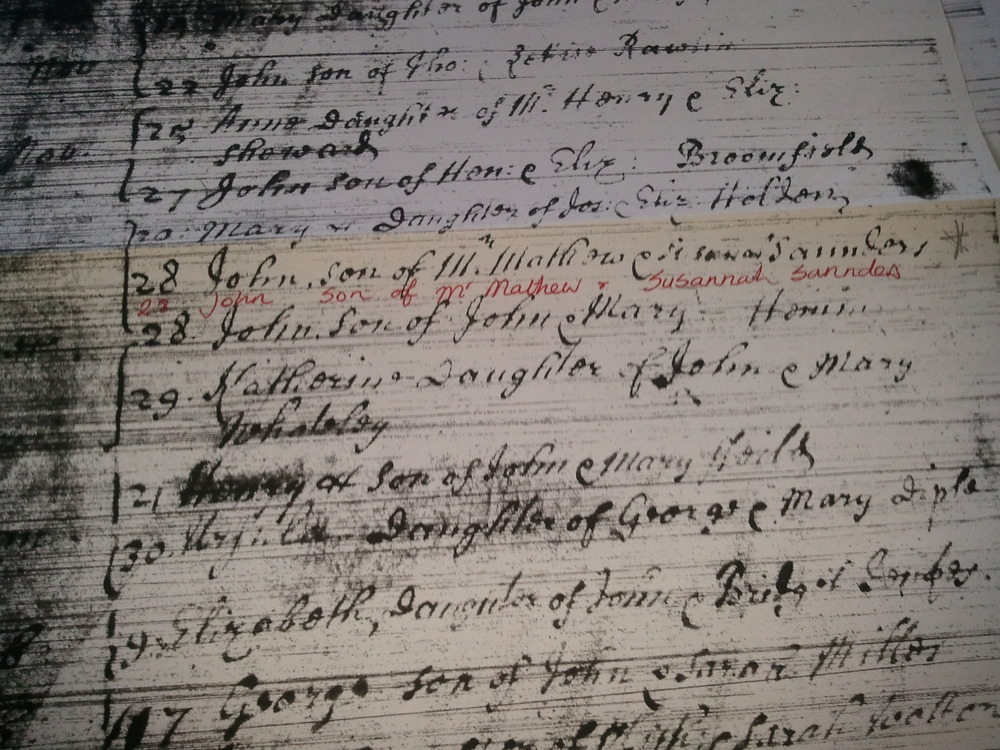 Mary Daughter of John
Nov 22 John son of Tho:
25 Anne Daughter of Mr Henry e Eliz:
Nov. Showard
27 John son of Hen: e Eliz: Broomfield
Mary Daughter of Jos: Eliz: Holden
28 John son of Mr. Mathew e Saunders
28 John son of Mr Mathew & Susannah Sannders
28. John Son of John e Mary Hemin
29. Katherine Daughter of John e Mary
Whateley
21 Henry son of John e Mary
30. Daughter of George e Mary
9. Elizabeth, Daughter of John e Bridget
17 George son of John e Sarah Miller
Sarah